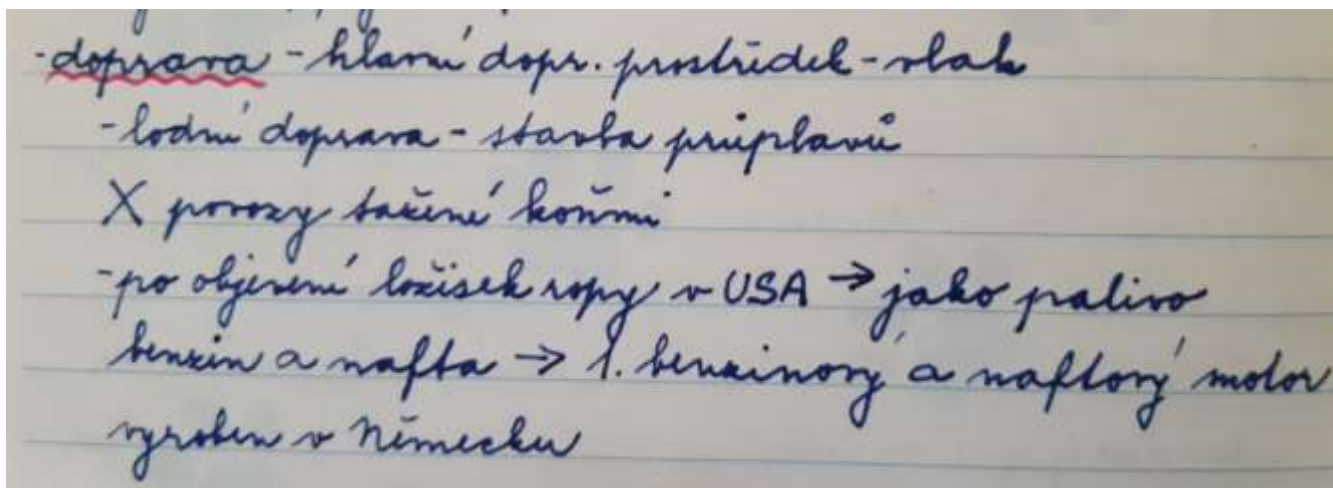 -doprava - hlavní dopr. prostředek - vlak
-lodní doprava - stavba průplavů
X povozy tažené koňmi
-po objevení ložisek ropy v USA → jako palivo
benzin a nafta → 1. benzinový a naftový motor
vyroben v Německu